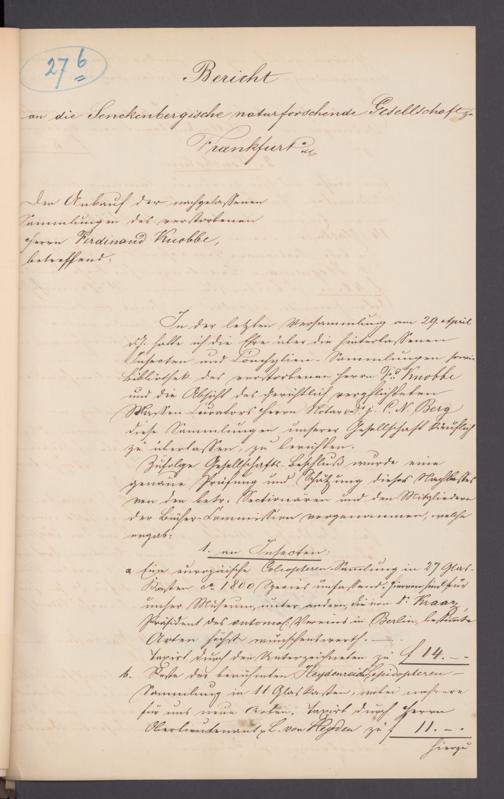 27 b
Bericht
an die Senckenbergische naturforschende Gesellschaft zu
Frankfurt a/M
Den Ankauf der nachgelassenen
Sammlungen des verstorbenen
Herrn Ferdinand Knobbe,
betreffend.
In der letzten Versammlung am 29. April
ds. J. hatte ich die Ehre über die hinterlassenen
Insecten und Conchylien-Sammlungen sowie
Bibliothek des verstorbenen Herrn Fd. Knobbe
und die Absicht des gerichtlich verpflichteten
Massen-Curators Herrn Notar Dr. j. C. N. Berg
diese Sammlungen unserer Gesellschaft käuflich
zu überlassen, zu berichten.
Zufolge Gesellschafts-Beschluß wurde eine
genaue Prüfung und Schätzung dieses Nachlasses
von den betr. Sectionären und den Mitgliedern
der Bücher-Commission vorgenommen, welche
ergab:
1. an Insecten.
a. Eine europäische Coleopteren-Sammlung in 27 Glas-
Kasten ca. 1800 Species umfassend. Hiervon sind für
unser Museum, unter andern, die von Dr. Kraaz,
Präsident des entomol. Vereins in Berlin, bestimmte
Arten höchst wünschenswerth.
Taxirt durch den Unterzeichneten zu f 14. – –
b. Reste der berühmten Heydenreich Lepidopteren-
Sammlung in 11 Glaskasten, wobei mehrere
für uns neue Arten. Taxirt durch Herrn
Oberlieutenant L. von Heyden zu f 11. – –
hierzu